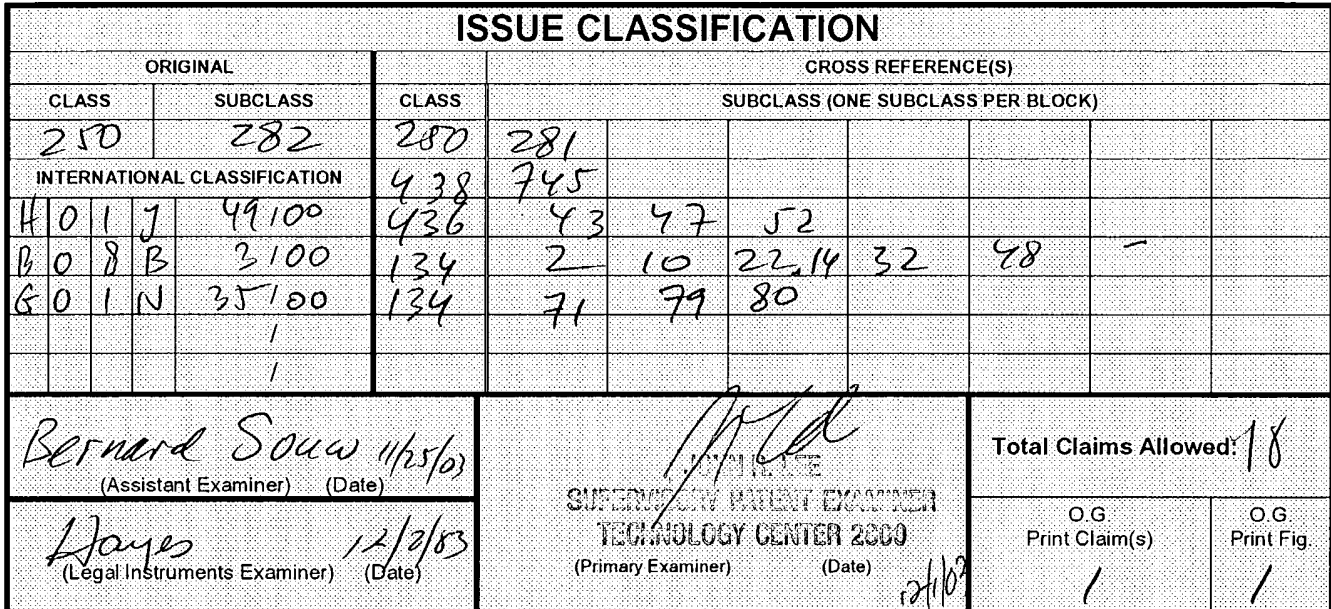 ISSUE CLASSIFICATION
ORIGINAL CROSS REFERENCE(S)
CLASS SUBCLASS CLASS SUBCLASS (ONE SUBCLASS PER BLOCK)
250 282 250 281
INTERNATIONAL CLASSIFICATION 438 745
H 0 1 J 49/00 436 43 47 52
B 0 8 B 3/00 134 2 10 22.14 32 48 -
G 0 1 N 35/00 134 71 79 80
/
/
Bernard Souw 11/25/03
(Assistant Examiner) (Date)
Hayes 12/2/03
(Legal Instruments Examiner) (Date)
JOHN R. LEE
SUPERVISORY PATENT EXAMINER
TECHNOLOGY CENTER 2800
(Primary Examiner) (Date)
Total Claims Allowed: 18
O.G. Print Claim(s)
1
O.G. Print Fig.
1